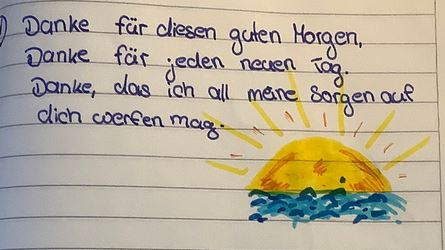 ) Danke für diesen guten Morgen,
Danke für jeden neuen Tag.
Danke, das ich all meine Sorgen auf
dich werfen mag.